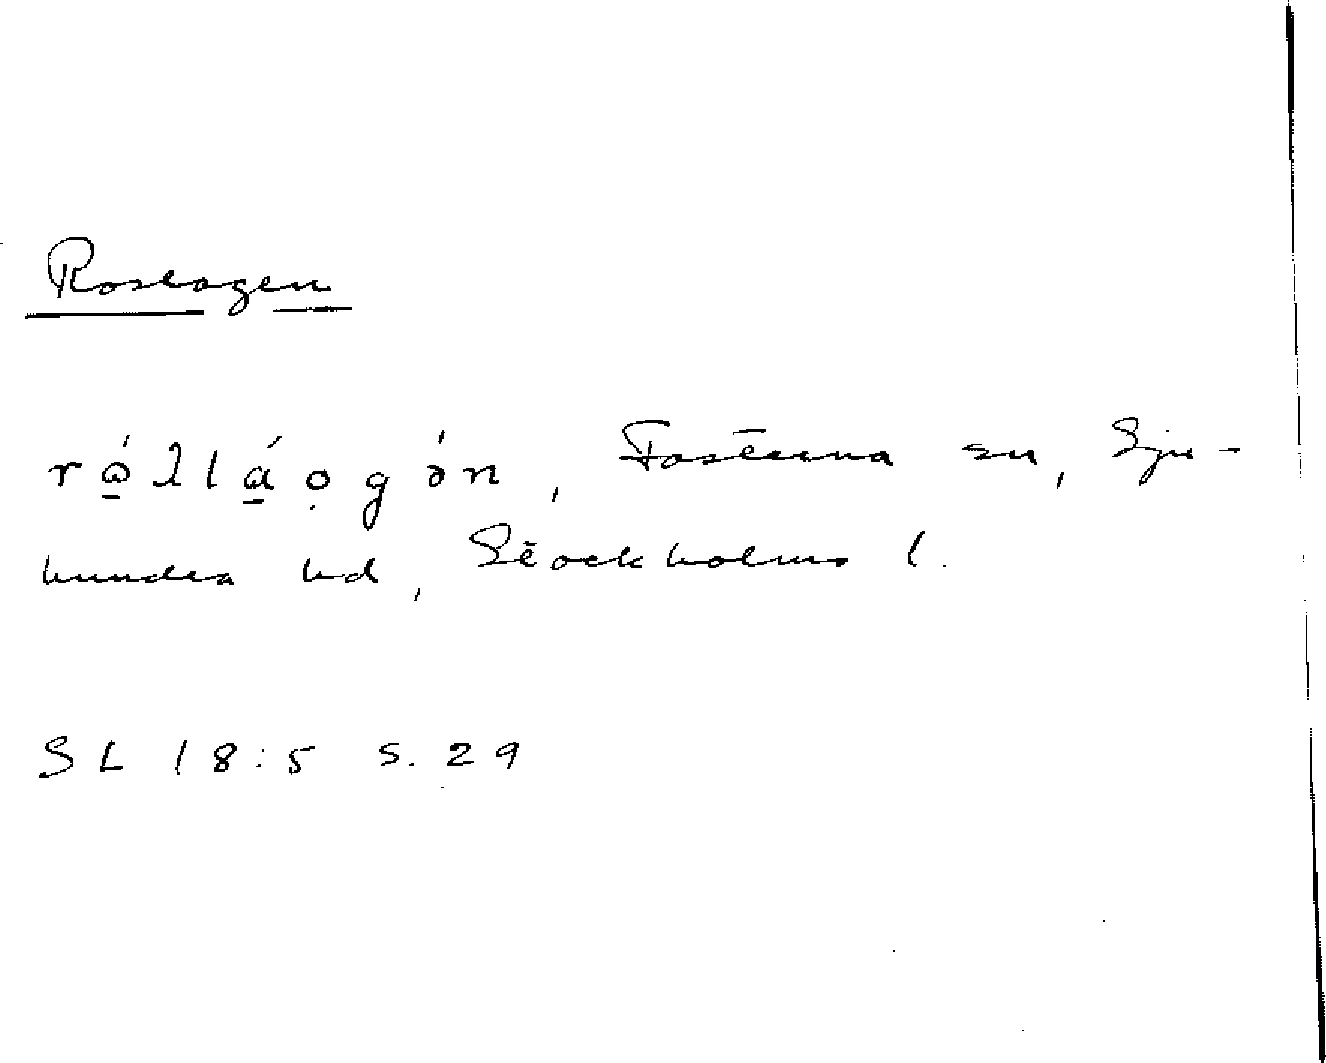 Roslagen
Fasterna sn, Sju-
hundra hd, Stockholms l.
SL 18:5 s. 29